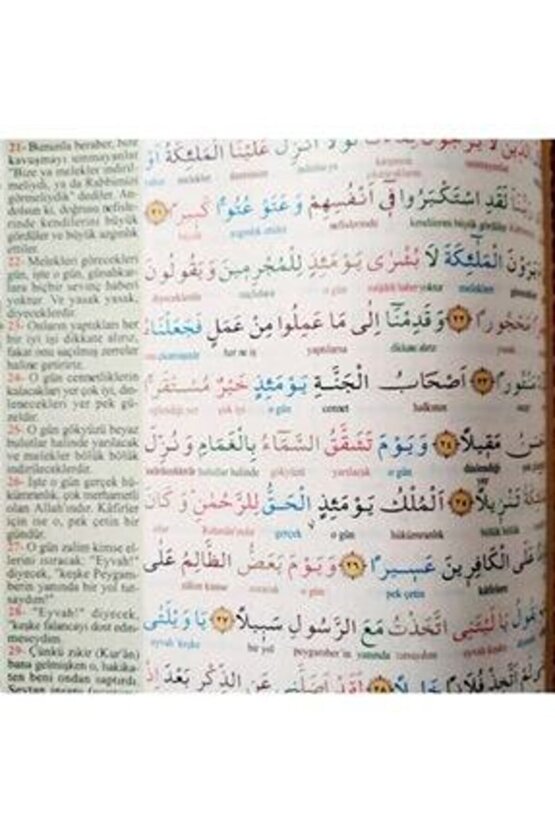 21- Bununla beraber, bize
kavuşmayı ummayanlar
"Bize ya melekler indiril-
meliydi, ya da Rabbimizi
görmeliydik" dediler. An-
dolsun ki, doğrusu nefisle-
rinde kendilerini büyük
gördüler ve büyük azgınlık
ettiler.
22- Melekleri görecekleri
gün, işte o gün, günahkar-
lara hiçbir sevinç haberi
yoktur. Ve yasak yasak,
diyeceklerdir.
23- Onların yaptıkları her
bir iyi işi dikkate alırız,
fakat onu saçılmış zerreler
haline getiririz.
24- O gün cennetliklerin
kalacakları yer çok iyi, din-
lenecekleri yer pek gü-
zeldir.
25- O gün gökyüzü beyaz
bulutlar halinde yarılacak
ve melekler bölük bölük
indirileceklerdir.
26- İşte o gün gerçek hü-
kümranlık, çok merhametli
olan Allah'ındır. Kâfirler
için ise o, pek çetin bir
gündür.
27- O gün zalim kimse el-
lerini ısıracak: "Eyvah!"
diyecek, "keşke Peygam-
berin yanında bir yol tut-
saydım?"
28- "Eyvah!" diyecek,
"keşke falancayı dost edin-
meseydim.
29- Çünkü zikir (Kur'ân)
bana gelmişken o, hakika-
ten beni ondan saptırdı.
الَّذِينَ لَا يَرْجُونَ لِقَاءَنَا لَوْلَا اُنْزِلَ عَلَيْنَا الْمَلٰٓئِكَةُ اَوْ
رَبَّنَا لَقَدِ اسْتَكْبَرُوا فٓى اَنْفُسِهِمْ وَعَتَوْ عُتُوًّا كَبِيرًا ﴿٢١﴾
nefislerinde
يَرَوْنَ الْمَلٰٓئِكَةَ لَا بُشْرٰى يَوْمَئِذٍ لِلْمُجْرِمِينَ وَيَقُولُونَ
melekleri o gün diyeceklerdir
مَحْجُورًا ﴿٢٢﴾ وَقَدِمْنَٓا اِلٰى مَا عَمِلُوا مِنْ عَمَلٍ فَجَعَلْنَاهُ
dikkate alırız yaptıklarına her ne iş
مَنْثُورًا ﴿٢٣﴾ اَصْحَابُ الْجَنَّةِ يَوْمَئِذٍ خَيْرٌ مُسْتَقَرًّا
halkının cennet o gün çok iyi
حْسَنُ مَقِيلًا ﴿٢٤﴾ وَيَوْمَ تَشَقَّقُ السَّمَٓاءُ بِالْغَمَامِ وَنُزِّلَ
o gün yarılacak gökyüzü bulutlar halinde
ئِكَةُ تَنْزِيلًا ﴿٢٥﴾ اَلْمُلْكُ يَوْمَئِذٍ الْحَقُّ لِلرَّحْمٰنِ وَكَانَ
bölük bölük hükümranlık o gün gerçek Rahmân'ındır
عَلَى الْكَافِرِينَ عَسِيرًا ﴿٢٦﴾ وَيَوْمَ يَعَضُّ الظَّالِمُ عَلٰى
kâfirler pek çetin o gün zalim kimse
يَقُولُ يَا لَيْتَنِى اتَّخَذْتُ مَعَ الرَّسُولِ سَبِيلًا ﴿٢٧﴾ يَا وَيْلَتٰى
eyvah keşke peygamber'in yanında bir yol eyvah
لَمْ اَتَّخِذْ فُلَانًا خَلِيلًا ﴿٢٨﴾ لَقَدْ اَضَلَّنِى عَنِ الذِّكْرِ بَعْدَ اِذْ